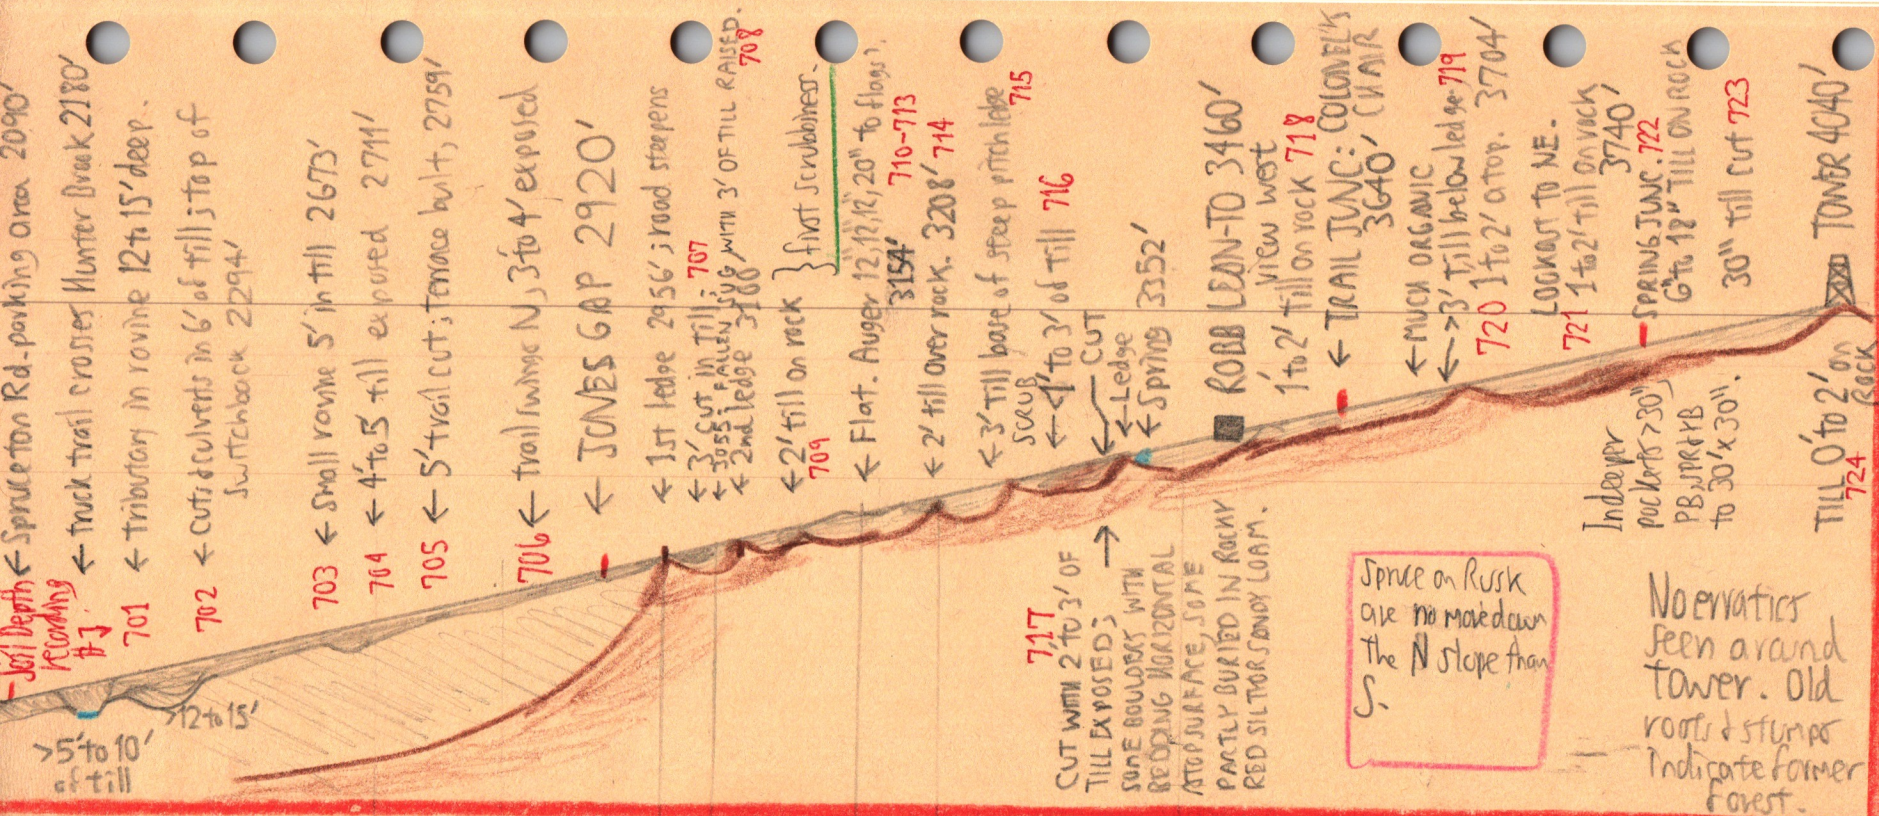 ← Spruceton Rd. parking area 2090'
- Soil Depth
recording
#J
← truck trail crosses Hunter Brook 2180'
701 ← tributary in ravine 12 to 15' deep.
702 ← cuts & culverts in 6' of till; top of
switchback 2294'
703 ← small ravine 5' in till 2673'
704 ← 4' to 5' till exposed 2711'
705 ← 5' trail cut; terrace built, 2759'
706 ← trail swings N, 3' to 4' exposed
← JONES GAP 2920'
← 1st ledge 2956'; road steepens
← 3' cut in till; 707
← 2nd ledge 3100'
WITH 3' OF TILL RAISED. 708
← 2' till on rock
709
} first scrubbiness.
← Flat. Auger 12, 12, 12, 20" to flags.
3154' 710-713
← 2' till over rock. 3208' 714
← 3' till base of steep pitch ledge 715
SCRUB
← 1' to 3' of till 716
← CUT
← Ledge
← Spring 3352'
ROBB LEAN-TO 3460'
view west
1' to 2' till on rock 718
← TRAIL JUNC: COLONEL'S
3640' CHAIR
← MUCH ORGANIC
← >3' till below ledge 719
720 1' to 2' atop. 3704'
LOOKOUT TO NE.
721 1' to 2' till on rock
3740'
SPRING JUNC. 722
6" to 18" TILL ON ROCK
30" till cut 723
TOWER 4040'
>5' to 10'
of till
>12 to 15'
717
CUT WITH 2' TO 3' OF →
TILL EXPOSED;
SOME BOULDERS WITH
BEDDING HORIZONTAL
ATOP SURFACE, SOME
PARTLY BURIED IN ROCKY
RED SILT OR SANDY LOAM.
Spruce on Rusk
are no more down
the N slope than
S.
In deeper
pockets >30",
to 30' x 30".
TILL 0' to 2' on
ROCK
724
No erratics
seen around
tower. Old
roots & stumps
indicate former
forest.